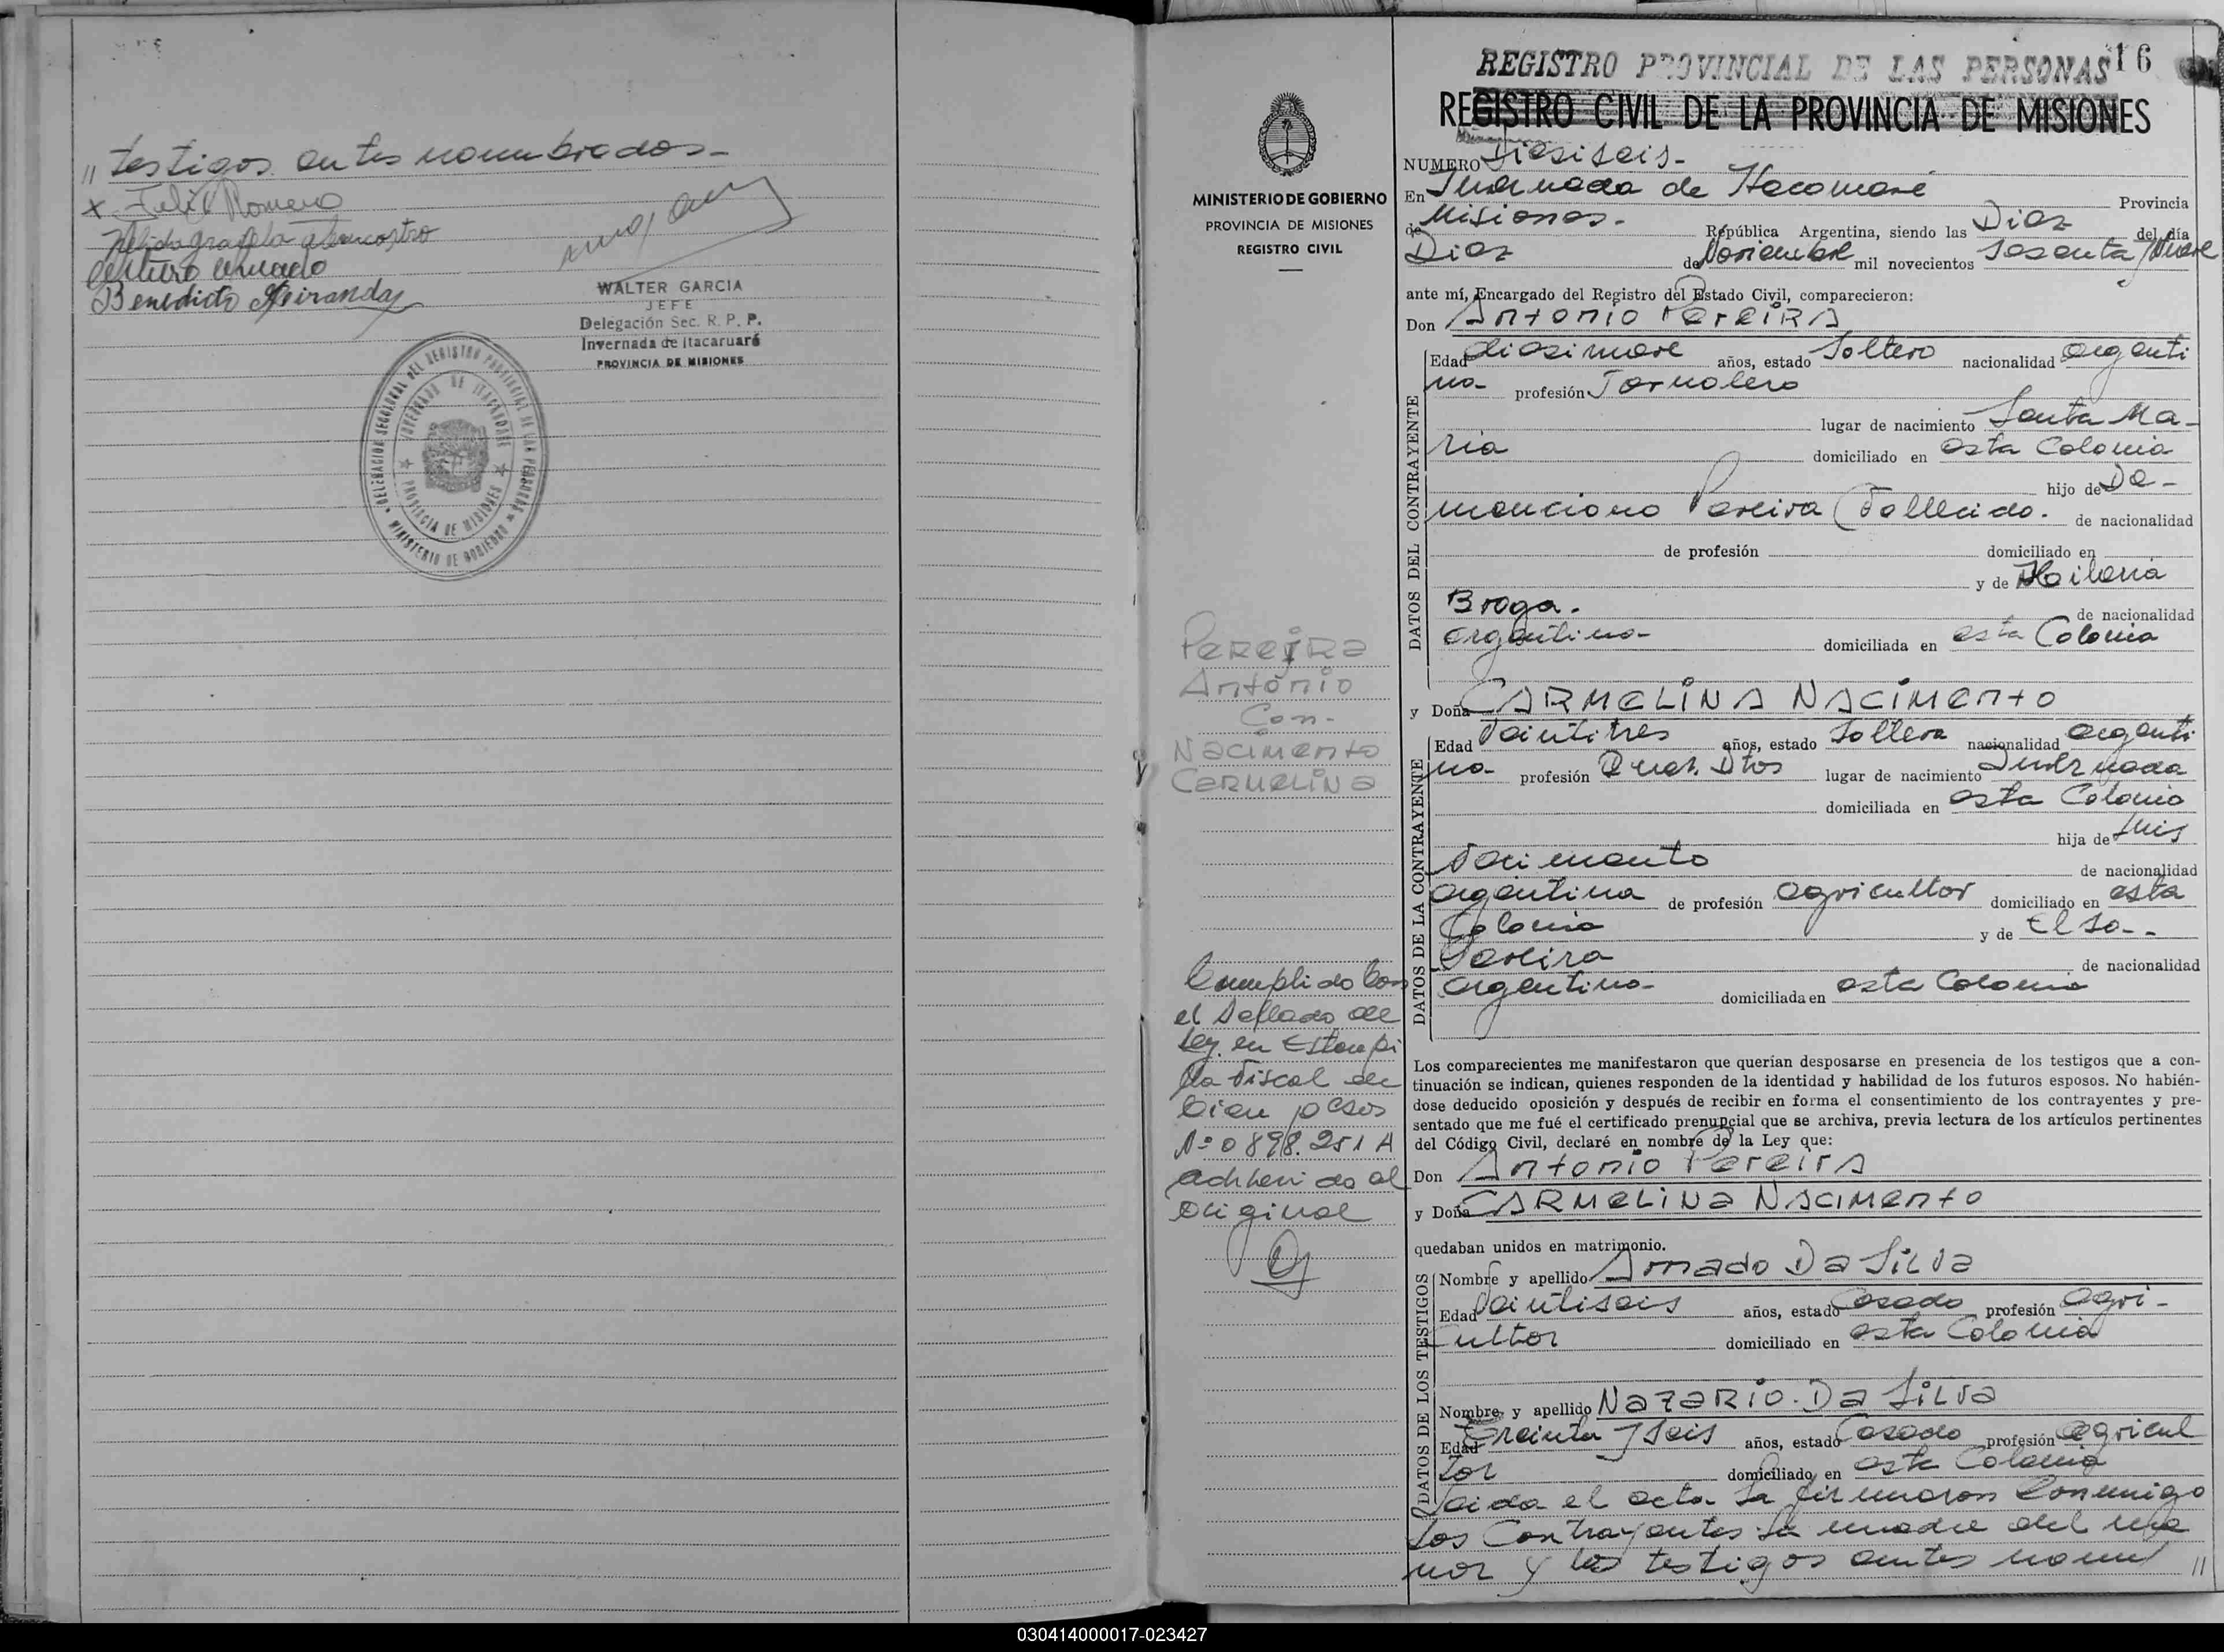 " testigos antes nombrados-
x Felix Romero
Nelida graciela alencastro
Arturo amado
Benedicto Miranda
WALTER GARCIA
JEFE
Delegación Sec. R. P. P.
Invernada de Itacaruaré
PROVINCIA DE MISIONES
DELEGACION SECCIONAL DEL REGISTRO PROVINCIAL DE LAS PERSONAS
MINISTERIO DE GOBIERNO
INVERNADA DE ITACARUARE
PROVINCIA DE MISIONES
MINISTERIO DE GOBIERNO
PROVINCIA DE MISIONES
REGISTRO CIVIL
Pereira
Antonio
Con-
Nacimento
Carmelina
Cumplido Con
el Sellado de
Ley. en Estampi
lla Fiscal de
Cien pesos
Nº 0898.251 A
adherido al
Original
REGISTRO PROVINCIAL DE LAS PERSONAS 16
REGISTRO CIVIL DE LA PROVINCIA DE MISIONES
NUMERO Diesiseis-
En Invernada de Itacaruaré Provincia
de Misiones.- República Argentina, siendo las Diez del día
Diez de Noviembre mil novecientos Sesenta y Nueve
ante mí, Encargado del Registro del Estado Civil, comparecieron:
Don Antonio Pereira
DATOS DEL CONTRAYENTE
Edad diesinueve años, estado Soltero nacionalidad argenti
na- profesión Jornalero
lugar de nacimiento Santa Ma-
ria domiciliado en esta Colonia
hijo de De-
menciano Pereira (Fallecido. de nacionalidad
de profesión domiciliado en
y de
Braga. de nacionalidad
argentina- domiciliada en esta Colonia
y Doña CARMELINA NACIMENTO
DATOS DE LA CONTRAYENTE
Edad Veintitres años, estado Soltera nacionalidad argenti
na- profesión Queh. Dtos lugar de nacimiento Invernada
domiciliada en esta Colonia
hija de Luis
Nacimento de nacionalidad
argentina de profesión agricultor domiciliado en esta
Colonia y de Elsa--
Pereira de nacionalidad
argentina- domiciliada en esta Colonia
Los comparecientes me manifestaron que querían desposarse en presencia de los testigos que a con-
tinuación se indican, quienes responden de la identidad y habilidad de los futuros esposos. No habién-
dose deducido oposición y después de recibir en forma el consentimiento de los contrayentes y pre-
sentado que me fué el certificado prenupcial que se archiva, previa lectura de los artículos pertinentes
del Código Civil, declaré en nombre de la Ley que:
Don Antonio Pereira
y Doña CARMELINA NACIMENTO
quedaban unidos en matrimonio.
DATOS DE LOS TESTIGOS
Nombre y apellido Amado Da Silva
Edad Veintiseis años, estado Casado profesión agri-
Cultor domiciliado en esta Colonia
Nombre y apellido Nazario. Da Silva
Edad Treinta y Seis años, estado Casado profesión agricul
tor domiciliado en esta Colonia
Leida el acta la firmaron Conmigo
los Contrayentes la madre del me
nor y los testigos antes nom "
030414000017-023427